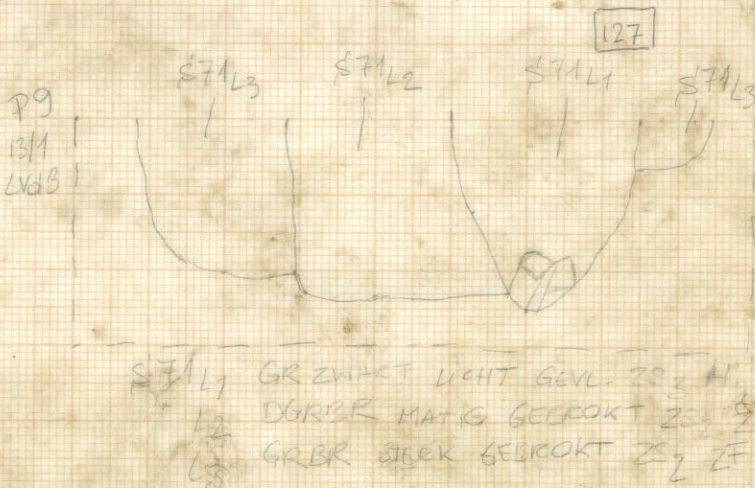 127
S71L3 S71L2 S71L1 S71L3
P9
13/1
LVdB
S71L1 GR ZWART LICHT GEVL. ZS2
L2 DGRBR MATIG GEBROKT ZS2
L3 GRBR STERK GEBROKT ZS2 ZF